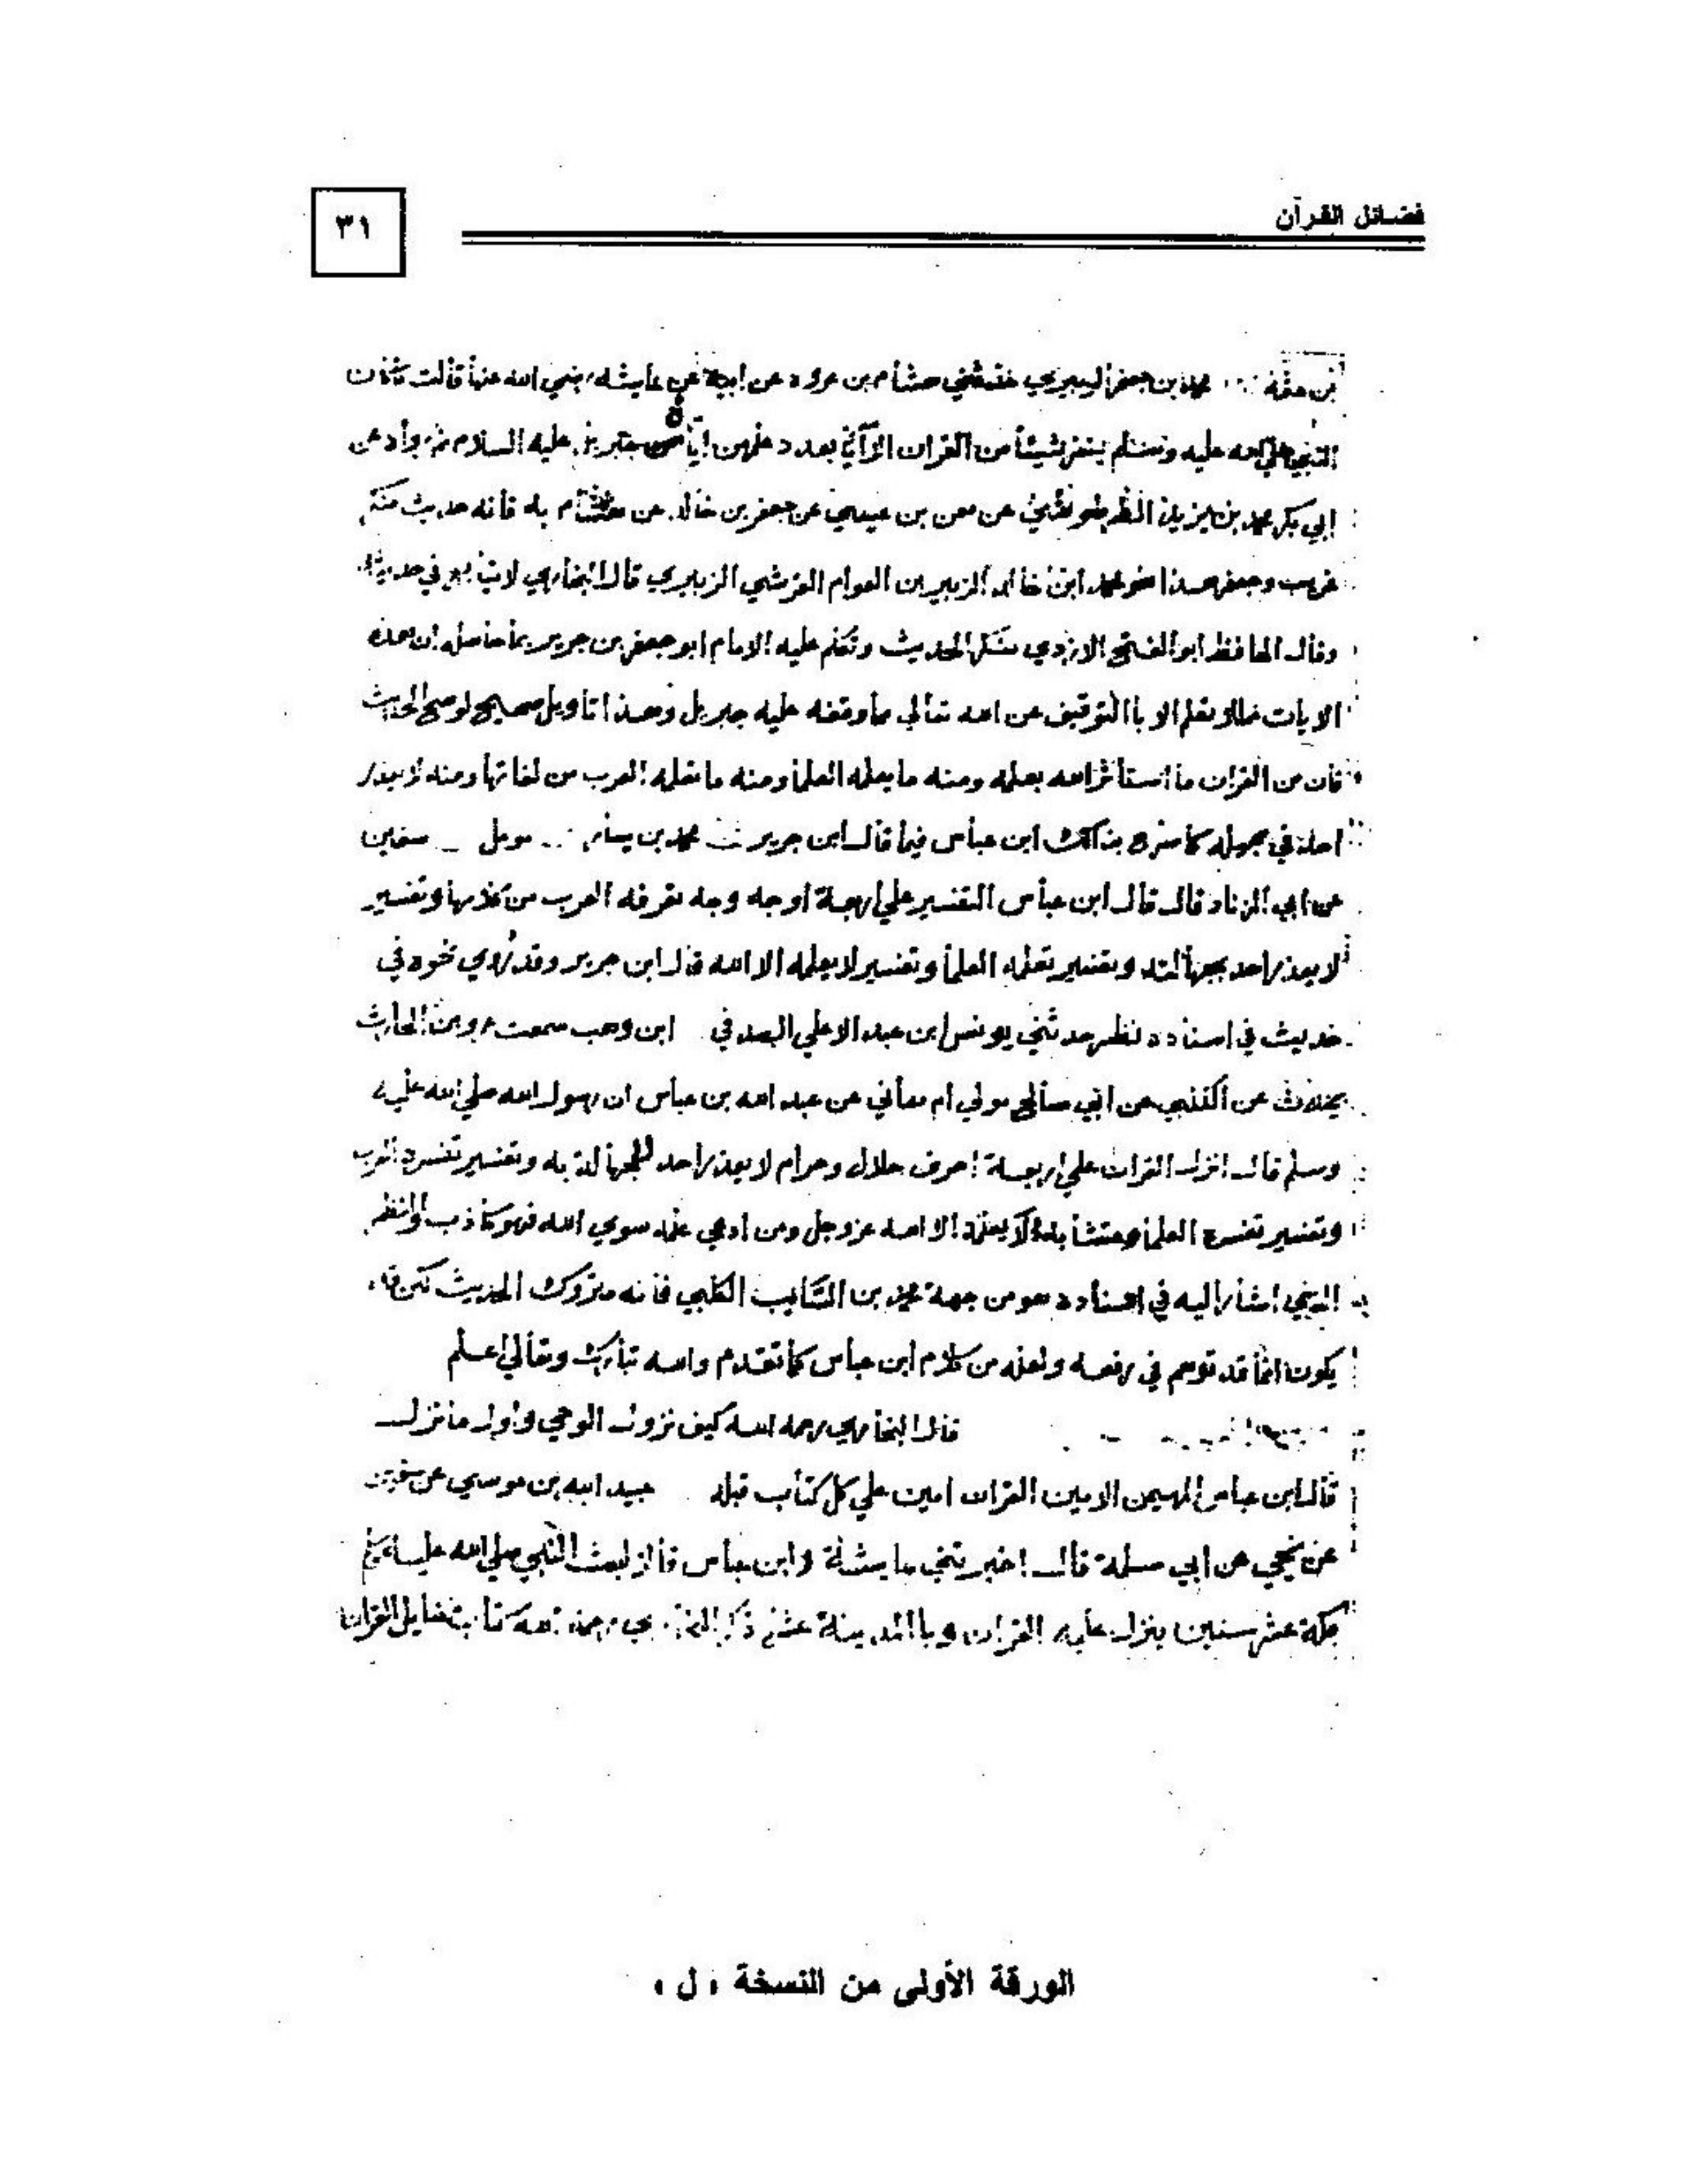 فضائل القرآن
٣١
محمد بن جعفر الزبيري حدثني هشام بن عروه عن ابيه عن عايشه رضي الله عنها قالت ما كان
النبي صلي الله عليه وسلم يفسر شيئا من القران الا آيا بعدد علمهن اياه جبريل عليه السلام ثم رواه عن
ابي بكر محمد بن يزيد الطرسوسي عن معن بن عيسي عن جعفر بن خالد عن هشام به فانه حديث منكر
غريب وجعفر هذا هو محمد ابن خالد الزبير بن العوام القرشي الزبيري قال البخاري لا يتابع في حديثه
وقال الحافظ ابو الفتح الازدي منكر الحديث وتكلم عليه الامام ابو جعفر بن جرير بما حاصله ان هذه
الايات مما لا يعلم الا با التوقيف عن الله تعالي مما وقفه عليه جبريل وهذا تاويل صحيح لو صح الحديث
فان من القران ما استاثر الله بعلمه ومنه ما يعلمه العلما ومنه ما تعلمه العرب من لغاتها ومنه لا يعذر
احد في جهله كما صرح بذالك ابن عباس فيما قال ابن جرير محمد بن بشار مومل سفين
عن ابي الزناد قال قال ابن عباس التفسير علي اربعة اوجه وجه تعرفه العرب من كلامها وتفسير
لا يعذر احد بجهالته وتفسير تعلمه العلما وتفسير لا يعلمه الا الله قال ابن جرير وقد روي نحوه في
حديث في اسناده نظر حدثني يونس ابن عبد الاعلي الصدفي ابن وهب سمعت عمرو بن الحارث
يحدث عن الكلبي عن ابي صالح مولي ام هاني عن عبد الله بن عباس ان رسول الله صلي الله عليه
وسلم قال انزل القران علي اربعة احرف حلال وحرام لا يعذر احد للجهالة به وتفسير تفسره العرب
وتفسير تفسره العلما ومتشابه لا يعلمه الا الله عز وجل ومن ادعي علمه سوي الله فهو كاذب والنظر
الذي اشار اليه في اسناده هو من جهة محمد بن السايب الكلبي فانه متروك الحديث لكن قد
يكون انما قد توهم في رفعه ولعله من كلام ابن عباس كما تقدم والله تبارك وتعالي اعلم
قال البخاري رحمه الله كيف نزول الوحي واول ما نزل
قال ابن عباس المهيمن الامين القران امين علي كل كتاب قبله عبيد الله بن موسي عن
عن يحيي عن ابي سلمة قال اخبرتني عايشة وابن عباس قالا لبث النبي صلي الله عليه وسلم
بمكة عشر سنين ينزل عليه القران وبا المدينة عشر ذكر البخاري رحمه الله كتاب فضايل القران
الورقة الأولى من النسخة «ل»